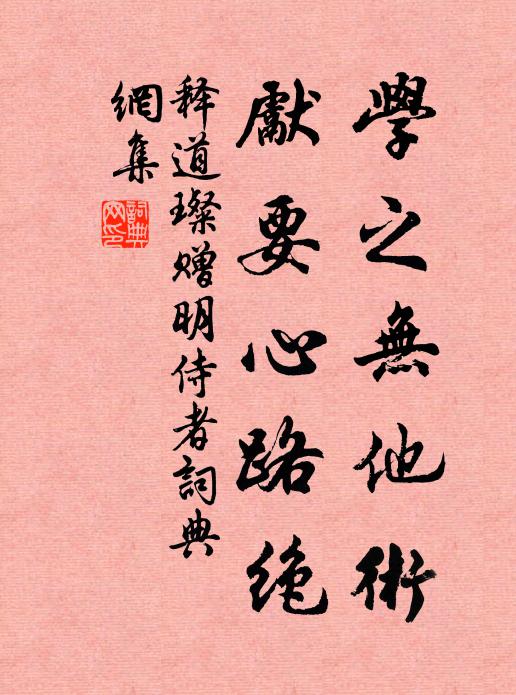 學之無他術
獻要心路絶
释道璨赠明侍者詞典
網集
詞典
网印